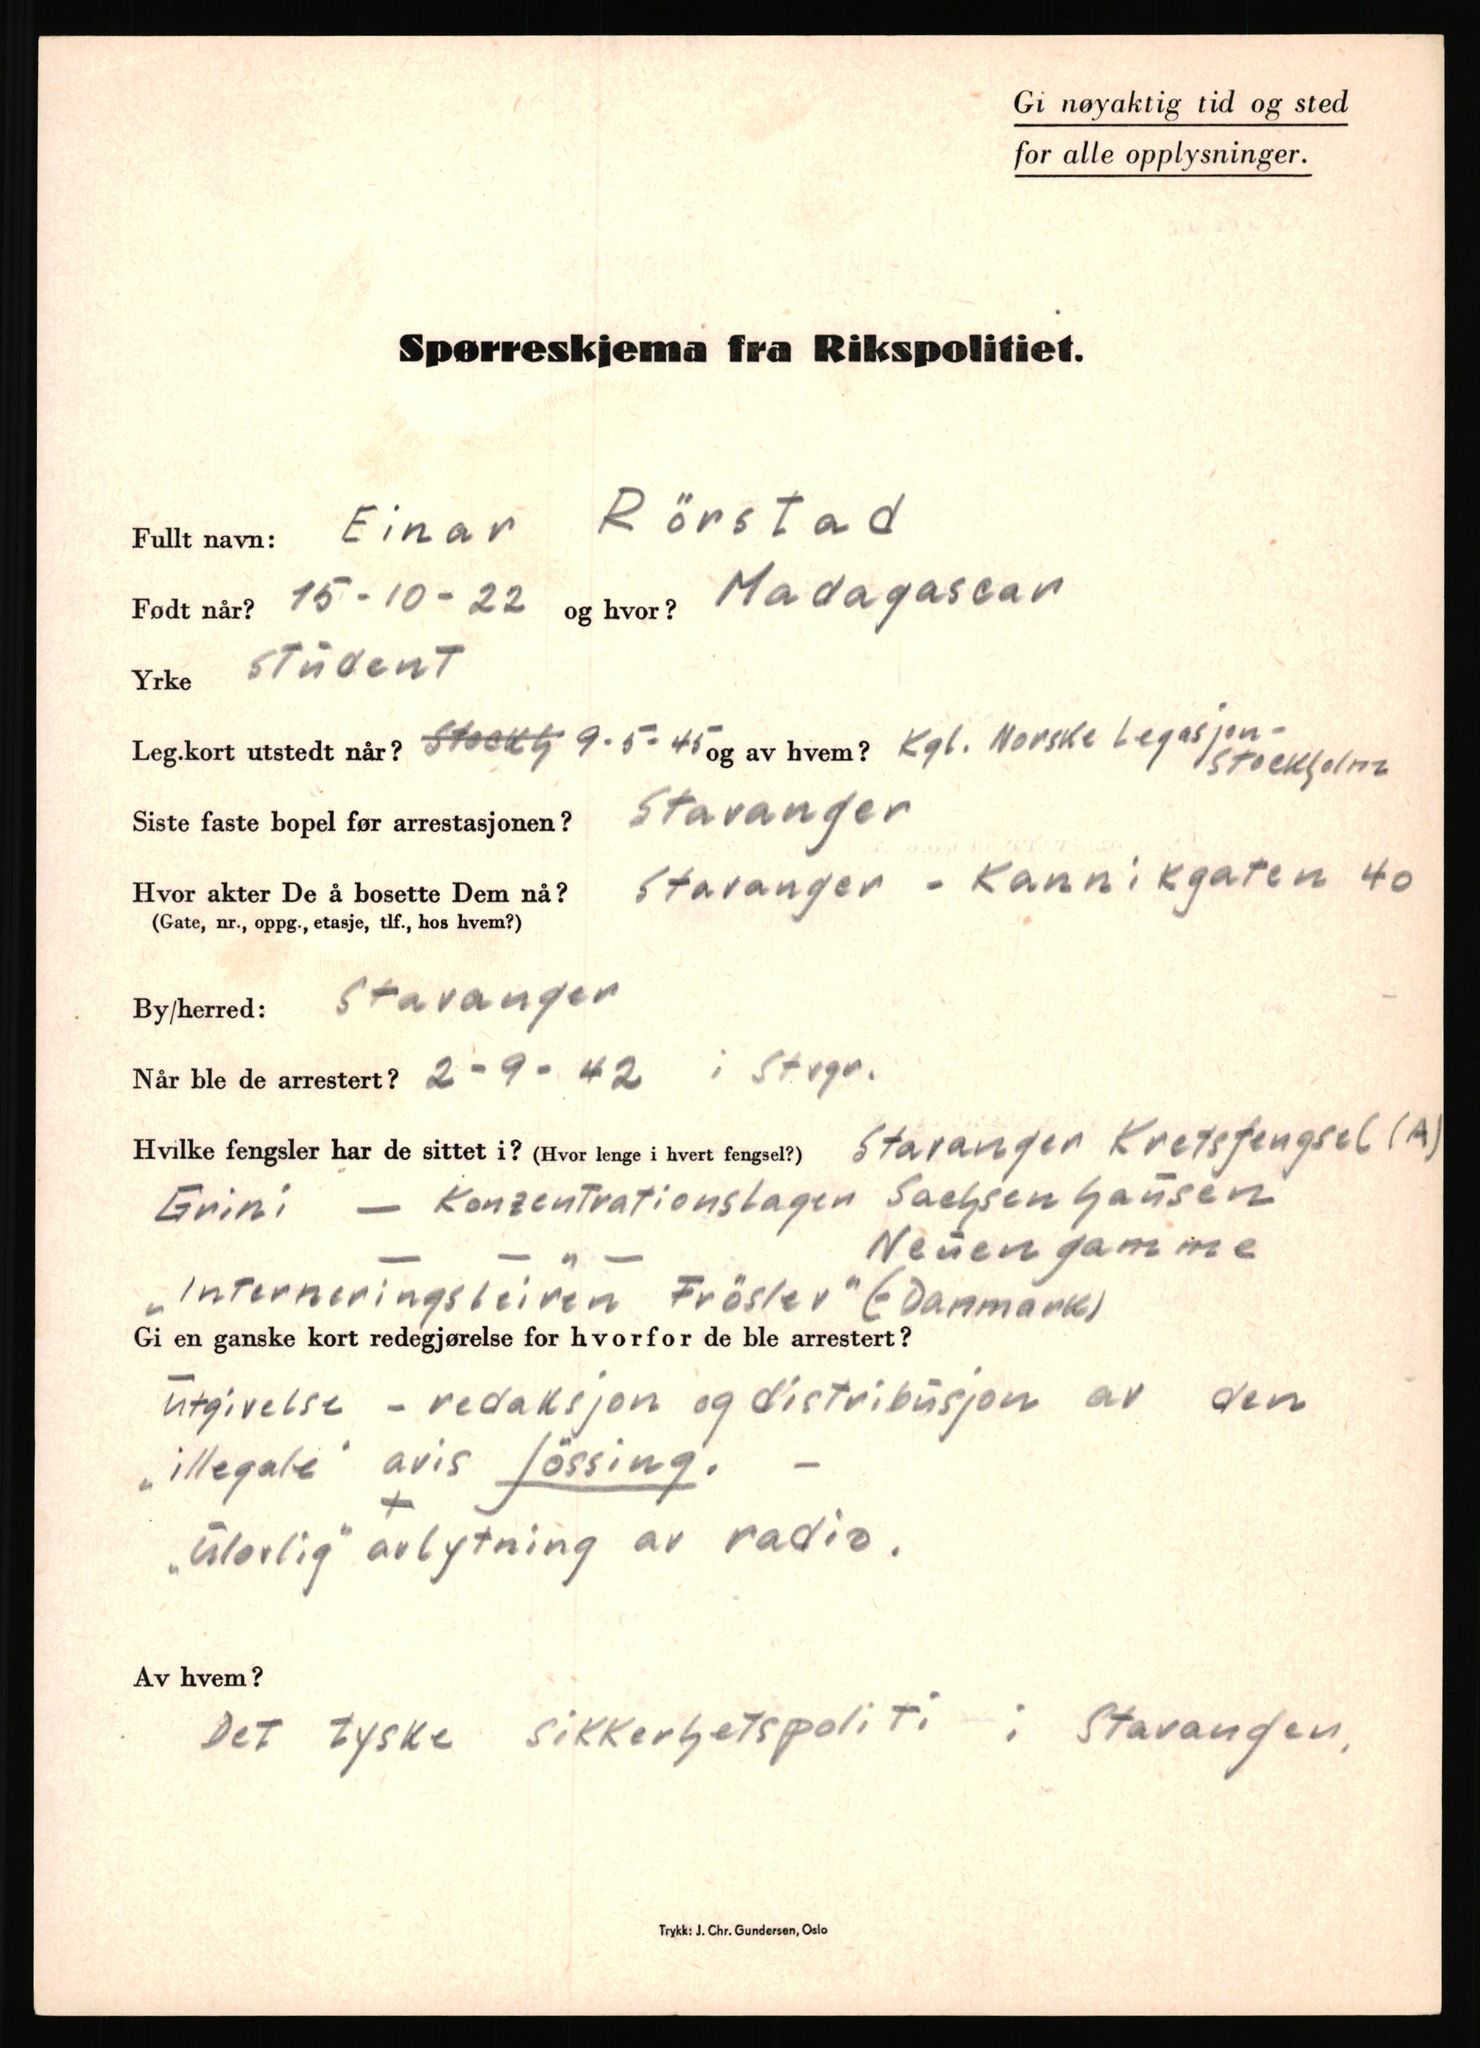 Gi nøyaktig tid og sted
for alle opplysninger.
Spørreskjema fra Rikspolitiet.
Fullt navn: Einar Rörstad
Født når? 15-10-22 og hvor? Madagascar
Yrke Student
Leg.kort utstedt når? Stockh 9-5-45 og av hvem? Kgl. Norske Legasjon-
Stockholm
Siste faste bopel før arrestasjonen? Stavanger
Hvor akter De å bosette Dem nå? Stavanger - Kannikgaten 40
(Gate, nr., oppg., etasje, tlf., hos hvem?)
By/herred: Stavanger
Når ble de arrestert? 2-9-42 i Stvgr.
Hvilke fengsler har de sittet i? (Hvor lenge i hvert fengsel?) Stavanger Kretsfengsel (A)
Grini — Konzentrationslager Sachsenhausen
— — " — Neuengamme
„Interneringsleiren Fröslev" (-Danmark)
Gi en ganske kort redegjørelse for hvorfor de ble arrestert?
Utgivelse - redaksjon og distribusjon av den
„illegale" avis Jössing. -
+
„Ulovlig" avlytning av radio.
Av hvem?
Det tyske sikkerhetspoliti i Stavanger.
Trykk: J. Chr. Gundersen, Oslo